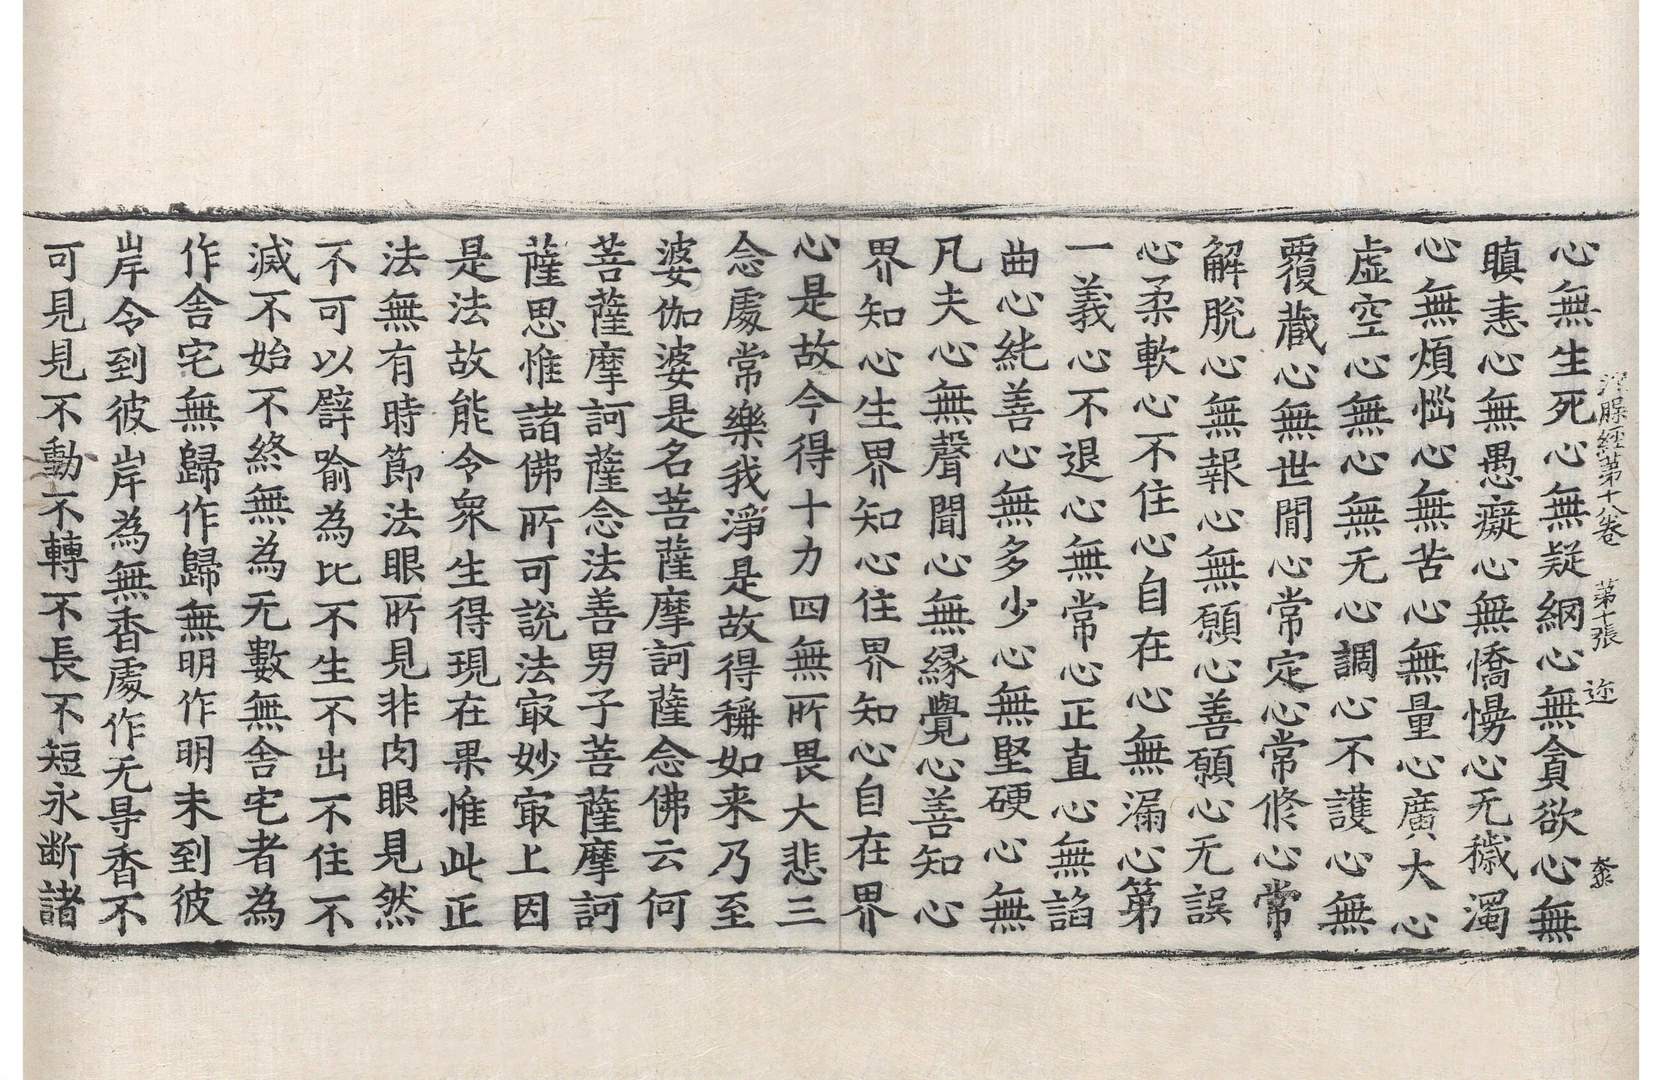 涅脲經第十八卷 第十張 迩 桼
心無生死心無疑網心無貪欲心無
瞋恚心無愚癡心無憍慢心无穢濁
心無煩惱心無苦心無量心廣大心
虚空心無心無无心調心不護心無
覆蔵心無世閒心常定心常修心常
解脫心無報心無願心善願心无誤
心柔軟心不住心自在心無漏心第
一義心不退心無常心正直心無諂
曲心純善心無多少心無堅硬心無
凡夫心無聲聞心無縁覺心善知心
界知心生界知心住界知心自在界
心是故今得十力四無所畏大悲三
念處常樂我淨是故得稱如来乃至
婆伽婆是名菩薩摩訶薩念佛云何
菩薩摩訶薩念法善男子菩薩摩訶
薩思惟諸佛所可說法㝡妙㝡上因
是法故能令衆生得現在果惟此正
法無有時節法眼所見非肉眼見然
不可以譬喻為比不生不出不住不
滅不始不終無為无數無舍宅者為
作舍宅無歸作歸無明作明未到彼
岸令到彼岸為無香處作无㝵香不
可見見不動不轉不長不短永断諸